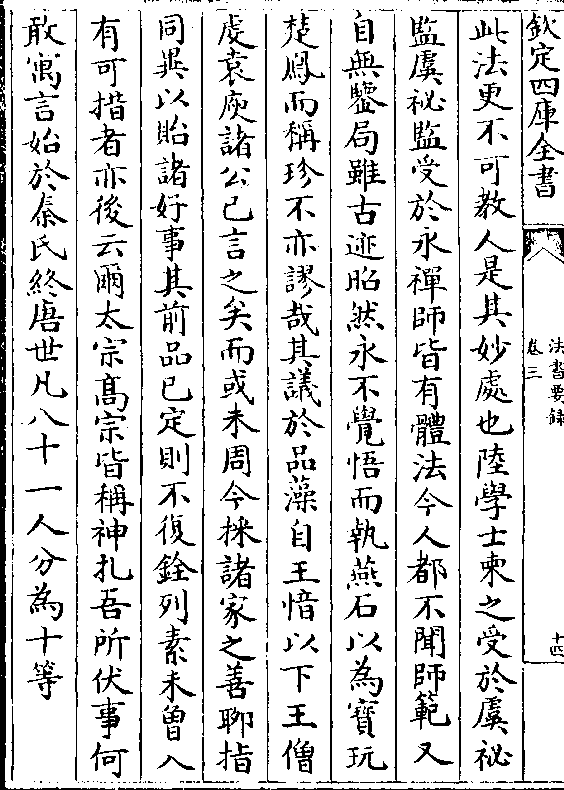 欽定四庫全書
法書要録
卷三
十四
此法更不可教人是其妙處也陸學士柬之受於虞祕
監虞祕監受於永禪師皆有體法今人都不聞師範又
自無鑒局雖古迹昭然永不覺悟而執燕石以為寶玩
楚鳳而稱珍不亦謬哉其議於品藻自王愔以下王僧
虔袁庾諸公已言之矣而或未周今採諸家之善聊指
同異以貽諸好事其前品已定則不復銓列素未曾入
有可措者亦後云爾太宗髙宗皆稱神札吾所伏事何
敢寓言始於秦氏終唐世凡八十一人分為十等